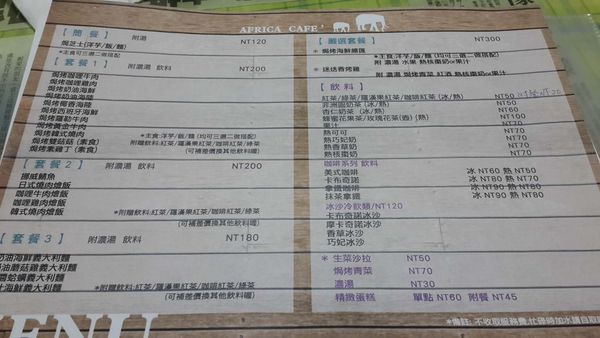 AFRICA CAFE'
【 簡 餐 】 附湯 NT120
焗芝士(洋芋/飯/麵)
*主食可三選二做搭配
【 套餐 1 】 附 濃湯 飲料 NT200
焗烤咖哩牛肉
焗烤咖哩雞肉
焗烤奶油海鮮
焗烤奶油海陸
焗烤椰香海陸
焗烤西班牙海鮮
焗烤羅勒牛肉
焗烤黃金牛肉
焗烤韓式豚肉
焗烤雙菇菇 (素食)
焗烤素雞丁 (素食)
*主食:洋芋/飯/麵 (均可三選二做搭配)
*附贈飲料:紅茶/羅漢果紅茶/咖啡紅茶/綠茶
(可補差價換其他飲料喔)
【 套餐 2 】 附濃湯 飲料 NT200
挪威鯖魚
日式燒肉燴飯
咖哩牛肉燴飯
咖哩雞肉燴飯
韓式燒肉燴飯
*附贈飲料:紅茶/羅漢果紅茶/咖啡紅茶/綠茶
(可補差價換其他飲料喔)
【 套餐 3 】 附濃湯 飲料 NT180
奶油海鮮義大利麵
奶油蘑菇雞義大利麵
蛤蠣義大利麵
海鮮義大利麵
*附贈飲料:紅茶/羅漢果紅茶/咖啡紅茶/綠茶
(可補差價換其他飲料喔)
MENU
【 嚴選套餐 】 NT300
* 焗烤海鮮總匯
*主食:洋芋/飯/麵(均可三選二做搭配)
附 濃湯 水果 熱核棗奶or果汁
* 迷迭香烤雞
附 濃湯 焗烤青菜 紅酒 熱核棗奶or果汁
【 飲 料 】
紅茶/綠茶/羅漢果紅茶/咖啡紅茶 (冰/熱) NT50
非洲國奶茶 (冰/熱) NT60
杏仁奶茶 (冰/熱) NT60
蜂蜜花果茶/玫瑰花茶(壺) (熱) NT100
果汁 NT70
熱可可 NT70
熱巧妃奶 NT70
熱香草奶 NT70
熱核棗奶 NT70
咖啡系列 飲料
美式咖啡 冰 NT60 熱 NT50
卡布奇諾 冰 NT90 熱 NT80
拿鐵咖啡 冰 NT90 熱 NT80
抹茶拿鐵 冰 NT90 熱 NT80
冰沙冷飲類/NT120
卡布奇諾冰沙
摩卡奇諾冰沙
香草冰沙
巧妃冰沙
* 生菜沙拉 NT50
焗烤青菜 NT70
濃湯 NT30
精緻蛋糕 單點 NT60 附餐 NT45
*備註: 不收取服務費,忙碌時加水請自取